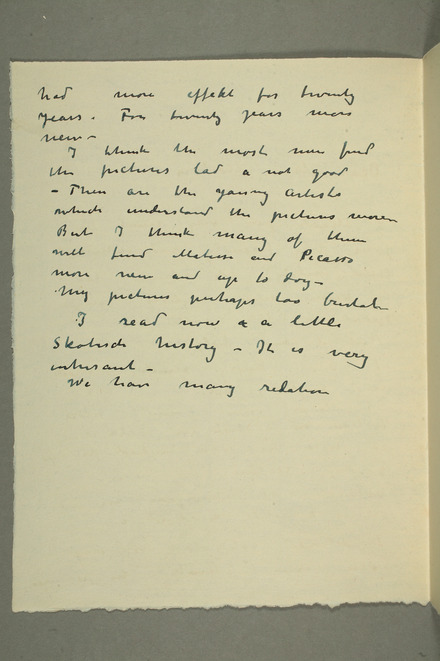 had more effekt for twenty
years. For twenty years more
new –
I think the most men find
the pictures bad a not good
– Then are the young artists
which understand the pictures more
But I think many of them
will find Matisse and Picasso
more new and up to day –
My pictures perhaps too brutale
I read now a a little
Skotisch history – It is very
intresant –
We have many relation